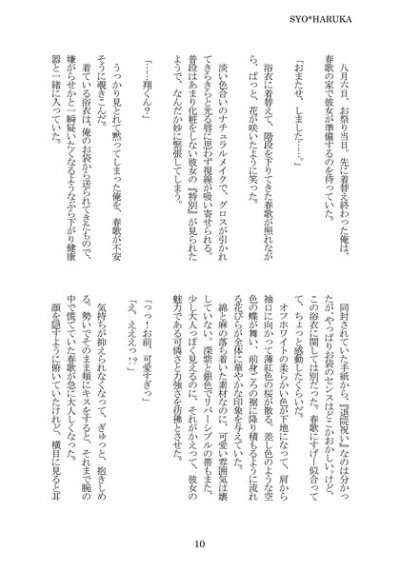 SYO*HARUKA
八月六日、お祭り当日。先に着替え終わった俺は、
春歌の家で彼女が準備するのを待っていた。
「おまたせ、しました……。」
浴衣に着替えて、階段を下りてきた春歌が照れなが
ら、ぱっと、花が咲いたように笑った。
淡い色合いのナチュラルメイクで、グロスが引かれ
てきらきらと光る唇に思わず視線が吸い寄せられる。
普段はあまり化粧をしない彼女の『特別』が見られた
ようで、なんだか妙に緊張してしまう。
「……翔くん？」
うっかり見とれて黙ってしまった俺を、春歌が不安
そうに覗きこんだ。
着ている浴衣は、俺のお袋から送られてきたもので、
嫌がらせかと一瞬疑いたくなるようなぶら下がり健康
器と一緒に入っていた。
同封されていた手紙から、『退院祝い』なのは分かっ
たが、やっぱりお袋のセンスはどこかおかしい。けど、
この浴衣に関しては別だった。春歌にすげー似合って
て、ちょっと感動したくらいだ。
オフホワイトの柔らかい色が下地になって、肩から
袖口に向かって薄紅色の桜が散る。差し色のような空
色の蝶が舞い、前身ごろの裾に降り積もるように流れ
る花びらが全体に華やかな印象を与えていた。
綿と麻の落ち着いた素材なのに、可愛い雰囲気は壊
していない。深紫と銀色でリバーシブルの帯もまた、
少し大人っぽく見えるのに、それがかえって、彼女の
魅力である可憐さと力強さを彷彿とさせた。
「っっ！お前、可愛すぎっ」
「え、えええっ!?」
気持ちが抑えられなくなって、ぎゅっと、抱きしめ
る。勢いでそのまま頬にキスをすると、それまで腕の
中で慌てていた春歌が急に大人しくなった。
顔を隠すように俯いていたけれど、横目に見ると耳
10